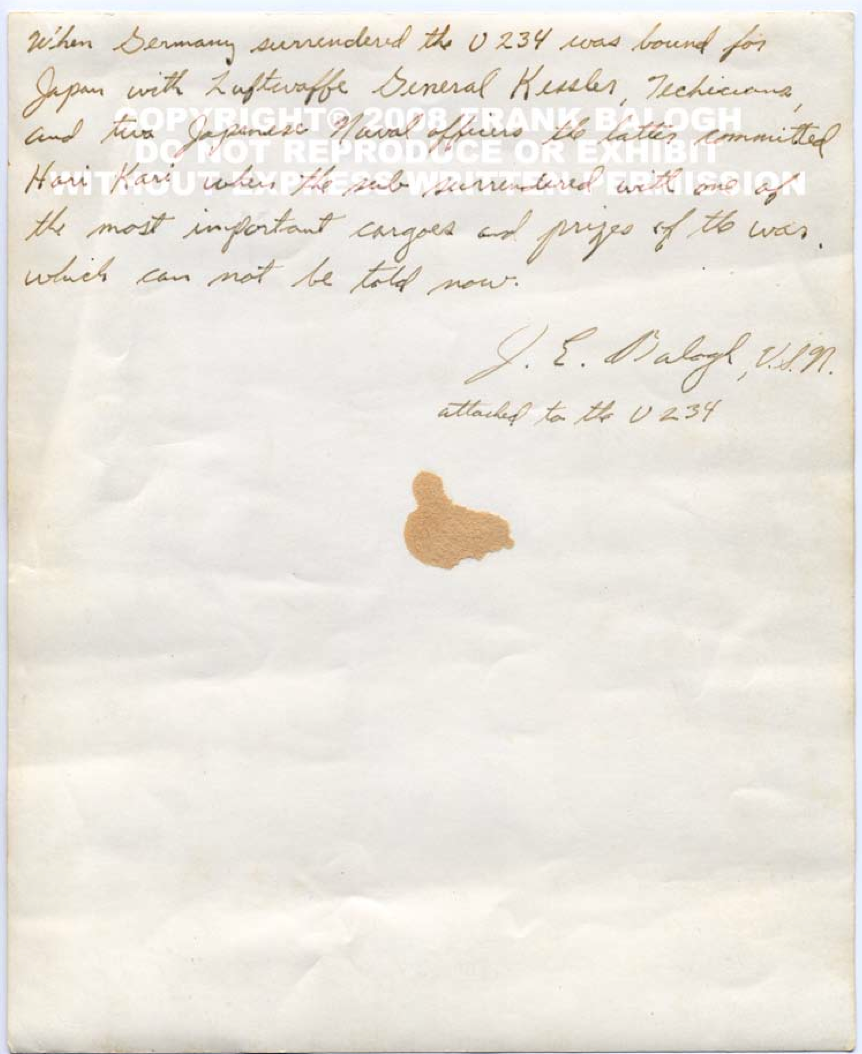 When Germany surrendered the U 234 was bound for
Japan with Luftwaffe General Kessler, Techicians,
COPYRIGHT© 2008 FRANK BALOGH
and two Japanese Naval officers the latter committed
DO NOT REPRODUCE OR EXHIBIT
Hari Kari when the sub surrendered with one of
WITHOUT EXPRESS WRITTEN PERMISSION
the most important cargoes and prizes of the war.
which can not be told now.
J. E. Balogh, U.S.N.
attached to the U 234